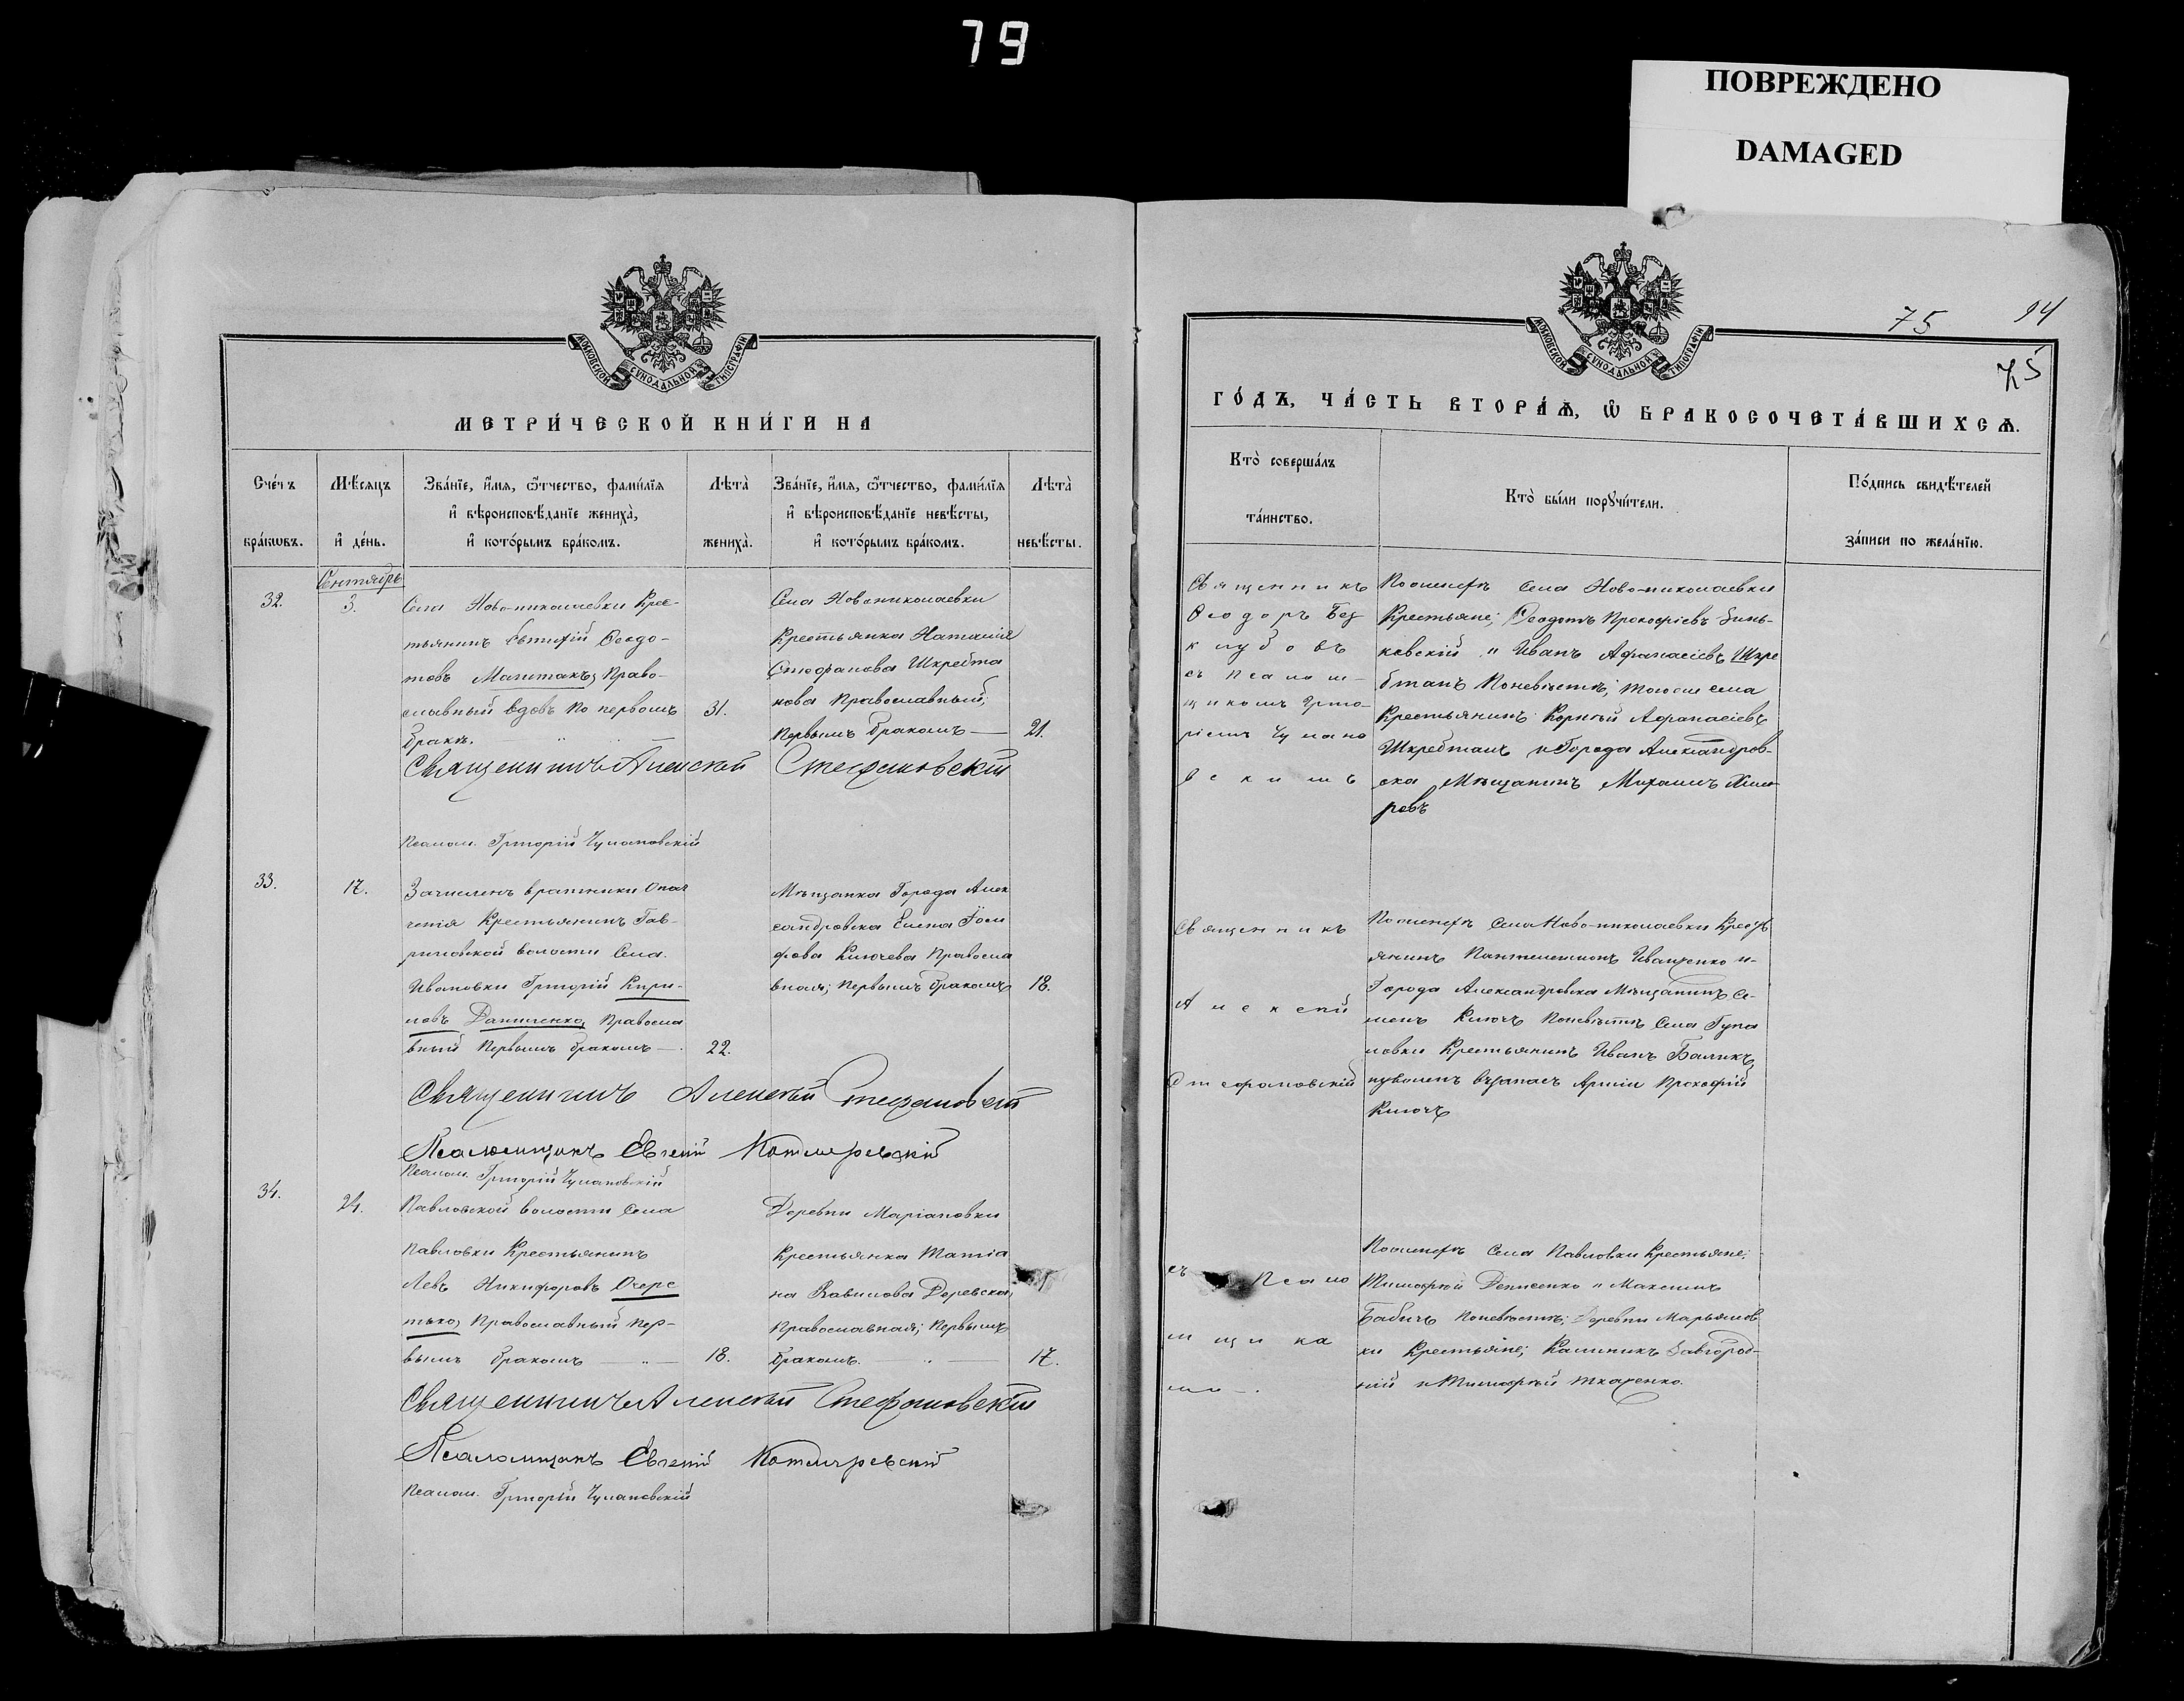 79
ПОВРЕЖДЕНО
DAMAGED
МОСКОВСКОЙ СѴНОДАЛЬНОЙ ТИПОГРАФІИ
МЕТРИ́ЧЕСКОЙ КНИ́ГИ НА
Сче́тъ бра́кѡвъ.
Мѣ́сяцъ и҆ де́нь.
Зва́нїе, и҆́мя, ѻ҆́тчество, фами́лїя и҆ вѣроисповѣ́данїе жениха̀, и҆ кото́рымъ бра́комъ.
Лѣта̀ жениха̀.
Зва́нїе, и҆́мя, ѻ҆́тчество, фами́лїя и҆ вѣроисповѣ́данїе невѣ́сты, и҆ кото́рымъ бра́комъ.
Лѣта̀ невѣ́сты.
Сентябрь
32.
3.
Села Ново-николаевки Крес-
тьянинъ Евтихій Ѳеодо-
товъ Право-
славный вдовъ по первомъ
бракѣ.
31.
Села Новониколаевки
Крестьянка Наталія
Стефанова Шкребта
кова Православный,
первымъ бракомъ —
21.
Священникъ Алексей Стефановскій
Псалом. Григорій Чулановскій
33.
17.
Зачисленъ в ратники Опол
ченія Крестьянинъ Гав-
риловской волости Села
Ивановки Григорій Кири-
ловъ Даниленко, Правосла
вный первымъ бракомъ —
22.
Мѣщанка Города Алек
сандровска Елена
Ключева Правосла
вная; первымъ бракомъ
18.
Священникъ Алексей Стефановскій
Псаломщикъ Евгеній Котляревскій
Псалом. Григорій Чулановскій
34.
24.
Павловской волости села
Павловки Крестьянинъ
Левъ Никифоровъ Очере
тько, Православный пер-
вымъ бракомъ — " —
18.
Деревни Маріановки
Крестьянка Татіа
на Вавилова Деревская,
Православная; первымъ
бракомъ. " —
17.
Священникъ Алексей Стефановскій
Псаломщикъ Евгеній Котляревскій
Псалом. Григорій Чулановскій
75 94
75
МОСКОВСКОЙ СѴНОДАЛЬНОЙ ТИПОГРАФІИ
ГО́ДЪ, ЧА́СТЬ ВТОРА́Ѧ, Ѽ БРАКОСОЧЕТА́ВШИХСѦ.
Кто̀ соверша́лъ та́инство.
Кто̀ бы́ли порꙋчи́тели.
По́дпись свидѣ́телей за́писи по жела́нїю.
Священникъ
Ѳеодоръ Без
клубовъ
съ псалом-
щикомъ Григо-
ріемъ Чулано
вскимъ
По женихѣ Села Ново-николаевки
Крестьяне; Ѳеодотъ Прокофіевъ Зинь-
ковскій и Иванъ Афанасіевъ Шкре
бтакъ по невѣстѣ; тогоже села
Крестьянинъ Корнѣй Афанасіевъ
Шкребтакъ и Города Александров-
ска Мѣщанинъ Михаилъ
ровъ
Священникъ
Алексей
Стефановскій
съ Псало
мщика
ми —.
По женихѣ Села Ново-николаевки Крестъ
янинъ Пантелеимонъ Иващенко и-
Города Александровска Мѣщанинъ Се-
менъ Ключъ по невѣстѣ Села Гупа
ловки Крестьянинъ Иванъ Баликъ,
уволенъ въ запасъ Арміи Прокофій
Ключъ
По женихѣ Села Павловки Крестьяне;
Тимофей Денисенко и Максимъ
Бабичъ по невѣстѣ; Деревни Марьянов
ки Крестьяне; Калиникъ Завгород-
ній и Тимофей Ткаченко.